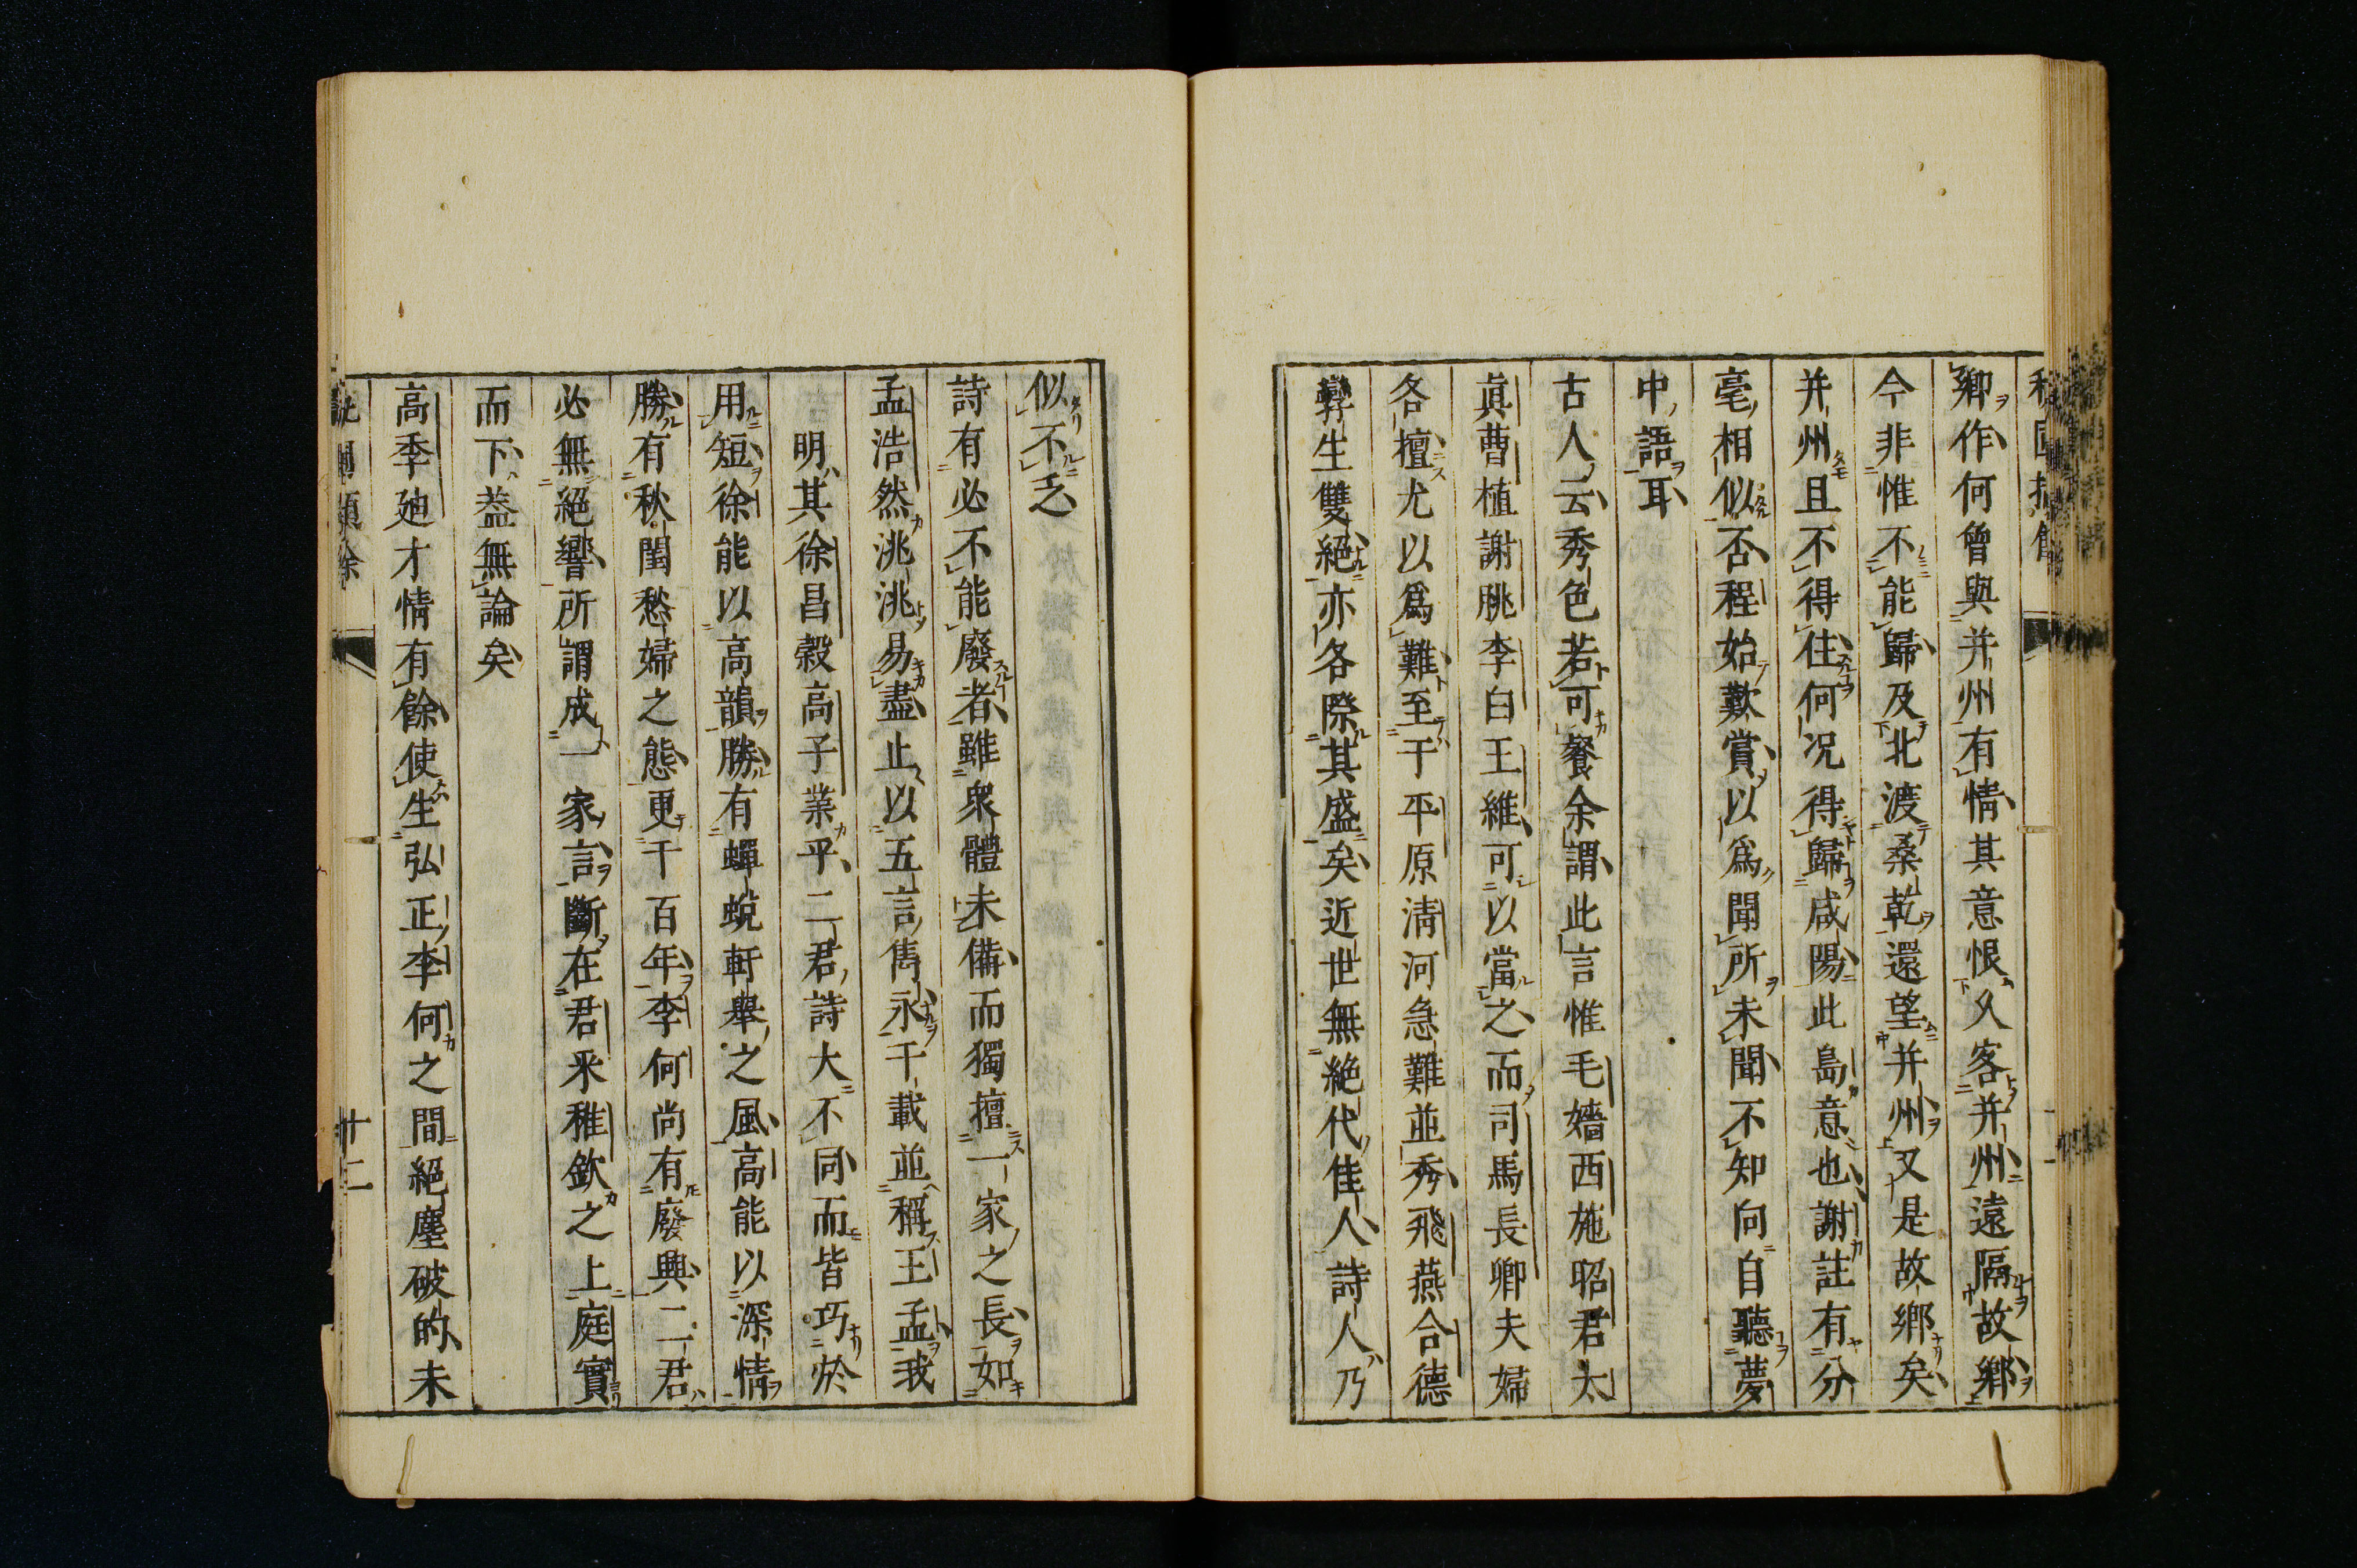 鄉作何曾與并州有情其意恨久客并州遠隔故鄉
今非惟不能歸及北渡桑乾還望并州又是故鄉矣
并州且不得住何况得歸咸陽此島意也謝註有分
毫相似否程始歎賞以爲聞所未聞不知向自聽夢
中語耳
古人云秀色若可餐余謂此言惟毛嬙西施昭君太
眞曹植謝朓李白王維可以當之而司馬長卿夫婦
各擅尤以爲難至于平原淸河急難並秀飛燕合德
孿生雙絕亦各際其盛矣近世無絶代佳人詩人乃
似不乏
詩有必不能廢者雖衆體未備而獨擅一家之長如
孟浩然洮洮易盡止以五言雋永千載並稱王孟我
明其徐昌穀高子業乎二君詩大不同而皆巧於
用短徐能以高韻勝有蟬蛻軒舉之風高能以深情
勝有秋閨愁婦之態更千百年李何尚有廢興二君
必無絕響所謂成一家言斷在君釆稚欽之上庭實
而下益無論矣
高季廸才情有餘使生弘正李何之間絕塵破的未
十二